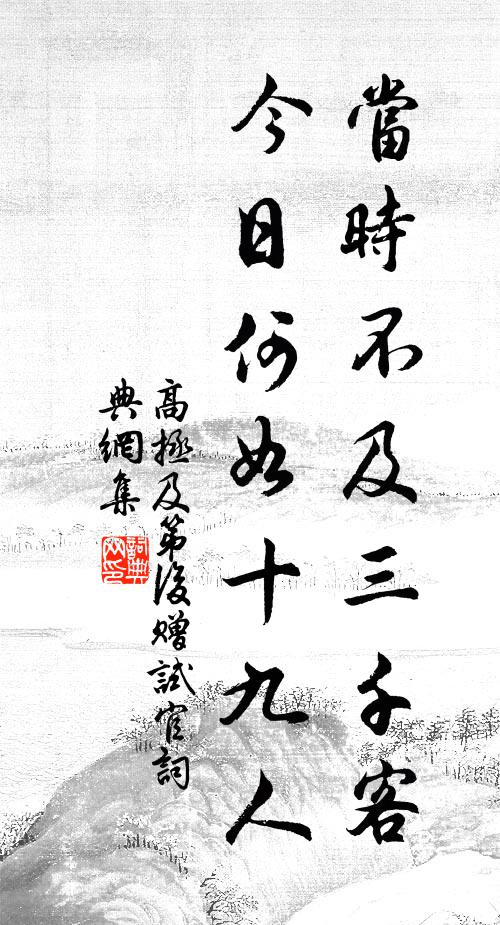 當時不及三千客
今日何如十九人
高拯及第後贈試官詞
典網集
詞典網印